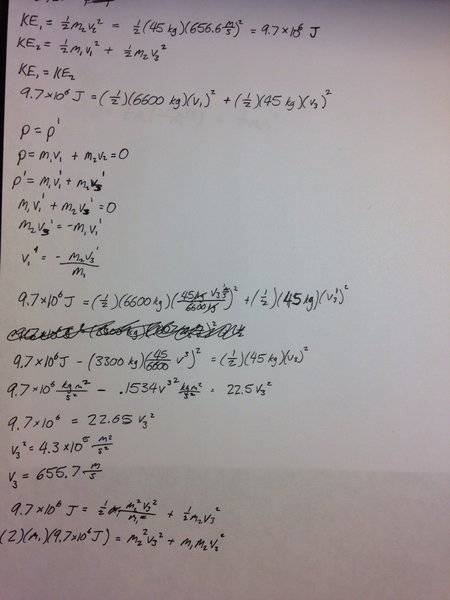 KE₁ = ½m₂v₂² = ½(45 kg)(656.6 m/s)² = 9.7×10⁶ J
KE₂ = ½m₁v₁² + ½m₂v₃²
KE₁ = KE₂
9.7×10⁶ J = (½)(6600 kg)(v₁)² + (½)(45 kg)(v₃)²
p = p'
p = m₁v₁ + m₂v₂ = 0
p' = m₁v₁' + m₂v₃'
m₁v₁' + m₂v₃' = 0
m₂v₃' = -m₁v₁'
v₁' = - m₂v₃'/m₁
9.7×10⁶ J = (½)(6600 kg)(45kg v₃' m/s / 6600kg)² + (½)(45 kg)(v₃')²
9.7×10⁶ J - (3300 kg)(45/6600 v³)² = (½)(45 kg)(v₃)²
9.7×10⁶ kg m²/s² - .1534v³² kg m²/s² = 22.5 v₃²
9.7×10⁶ = 22.65 v₃²
v₃² = 4.3×10⁵ m²/s²
v₃ = 655.7 m/s
9.7×10⁶ J = ½ m₂²v₃²/m₁ + ½m₂v₃²
(2)(m₁)(9.7×10⁶ J) = m₂²v₃² + m₁m₂v₃²